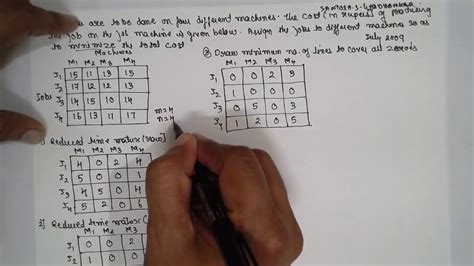 are to be done on four different machines. the cost (in rupees) of producing
the job on the jth machine is given below. Assign the jobs to different machines so as
to minimize the total cost
July 2009
M1 M2 M3 M4
J1 15 11 13 15
J2 17 12 12 13
Jobs J3 14 15 10 14
J4 16 13 11 17
Machines
m=4
n=4
3) Draw minimum no of lines to cover all zeros
M1 M2 M3 M4
J1 0 0 2 3
J2 1 0 0 0
J3 0 5 0 3
J4 1 2 0 5
Reduced time matrix (row)
M1 M2 M3 M4
J1 4 0 2 4
J2 5 0 0 1
J3 4 5 0 4
J4 5 2 0 6
2) Reduced time matrix (
M1 M2 M3
J1 0 0 2
J2 1 0 0